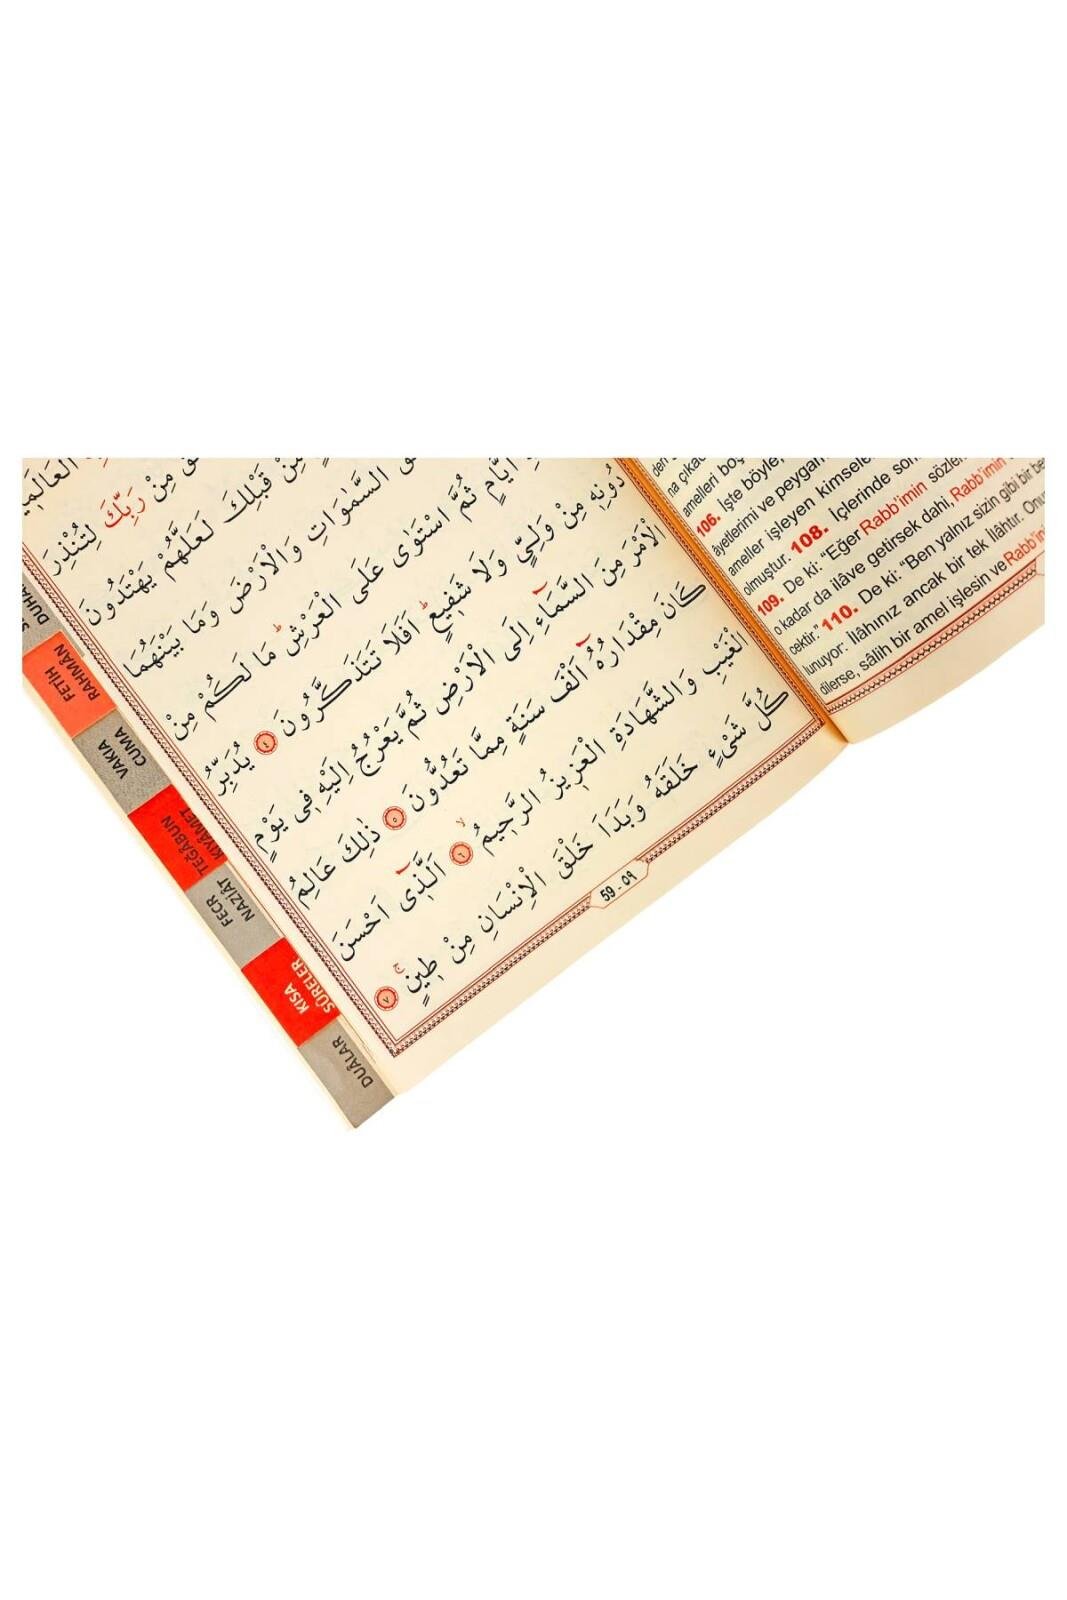 مِنْ رَبِّكَ لِتُنْذِرَ
قَبْلِكَ لَعَلَّهُمْ يَهْتَدُونَ
السَّمٰوَاتِ وَالْاَرْضَ وَمَا بَيْنَهُمَا
اَيَّامٍ ثُمَّ اسْتَوٰى عَلَى الْعَرْشِۜ مَا لَكُمْ مِنْ
دُونِهٖ مِنْ وَلِيٍّ وَلَا شَفٖيعٍۜ اَفَلَا تَتَذَكَّرُونَ ٤ يُدَبِّرُ
الْاَمْرَ مِنَ السَّمَٓاءِ اِلَى الْاَرْضِ ثُمَّ يَعْرُجُ اِلَيْهِ فٖى يَوْمٍ
كَانَ مِقْدَارُهُٓ اَلْفَ سَنَةٍ مِمَّا تَعُدُّونَ ٥ ذٰلِكَ عَالِمُ
الْغَيْبِ وَالشَّهَادَةِ الْعَزٖيزُ الرَّحٖيمُۙ ٦ اَلَّذٖٓى اَحْسَنَ
كُلَّ شَىْءٍ خَلَقَهُ وَبَدَاَ خَلْقَ الْاِنْسَانِ مِنْ طٖينٍۚ ٧
59 - ٥٩
FETİH
RAHMÂN
VAKIA
CUMA
TEĞÂBUN
KIYÂMET
FECR
NAZİÂT
KISA
SÛRELER
DUÂLAR
amelleri
106. İşte böyle,
âyetlerimi ve
ameller işleyen kimseler
olmuştur. 108. İçlerinde
109. De ki: “Eğer Rabb’imin sözleri
o kadar da ilâve getirsek dahi, Rabb’imin
cektir.” 110. De ki: “Ben yalnız sizin gibi bir
lunuyor: İlâhınız ancak bir tek İlâhtır.
dilerse, sâlih bir amel işlesin ve